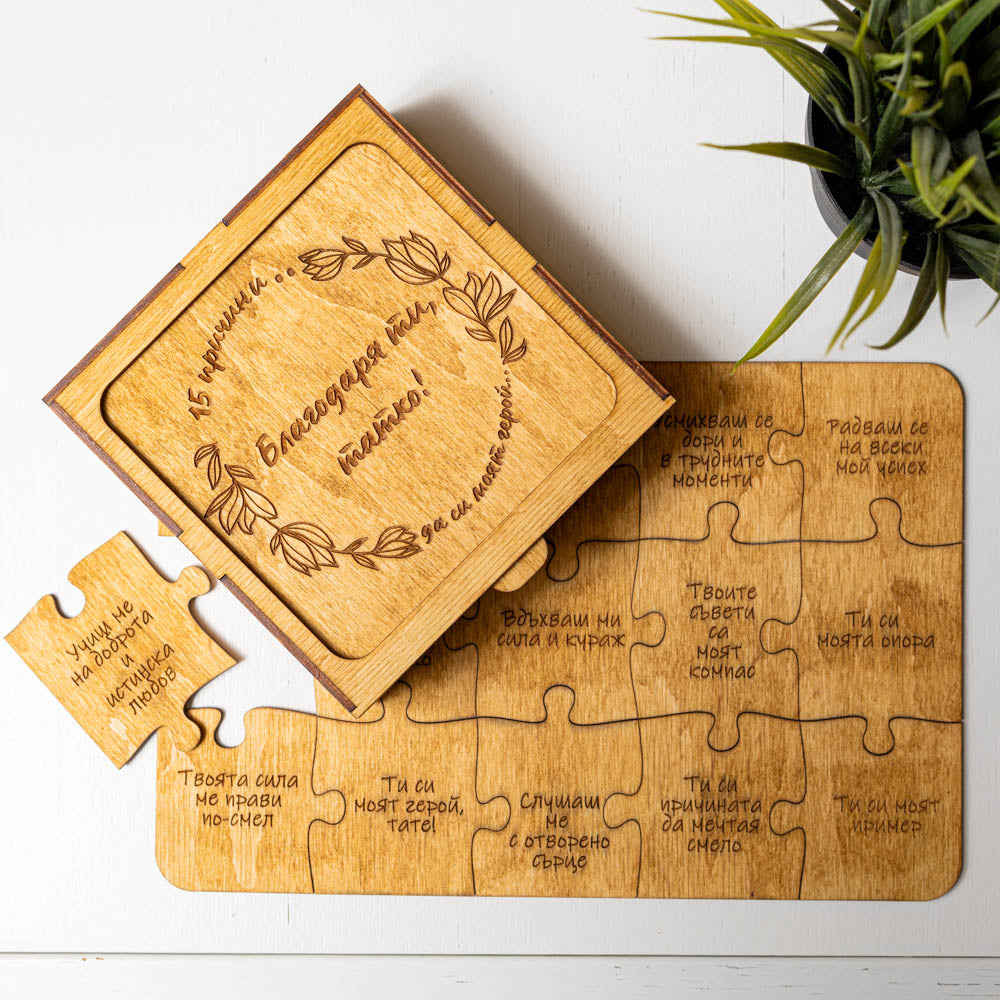 15 причини..
Благодаря ти,
татко!
да си моят герой..
Усмихваш се
дори и
в трудните
моменти
Радваш се
на всеки
мой успех
Учиш ме
на доброта
и
истинска
любов
Вдъхваш ми
сила и кураж
Твоите
съвети
са
моят
компас
Ти си
моята опора
Твоята сила
ме прави
по-смел
Ти си
моят герой,
тате!
Слушаш
ме
с отворено
сърце
Ти си
причината
да мечтая
смело
Ти си моят
пример